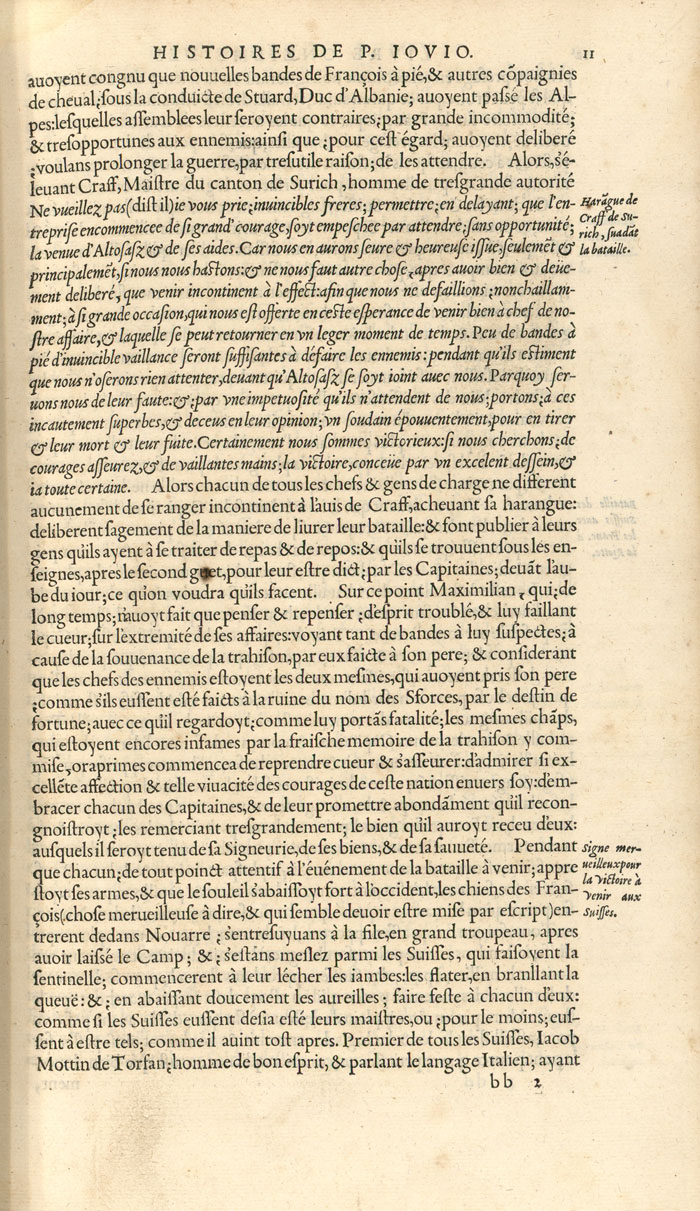 HISTOIRES DE P. IOVIO. 11
auoyent congnu que nouuelles bandes de François à pié,& autres cõpaignies
de cheual;sous la conduicte de Stuard,Duc d'Albanie; auoyent passé les Al-
pes:lesquelles assemblees leur seroyent contraires;par grande incommodité;
& tresopportunes aux ennemis:ainsi que;pour cest égard; auoyent deliberé
;voulans prolonger la guerre,par tresutile raison;de les attendre. Alors,s'é-
leuant Craff, Maistre du canton de Surich, homme de tresgrande autorité
Ne vueillez pas(dist il)ie vous prie;inuincibles freres; permettre;en delayant; que l'en-
treprise encommencee de si grand' courage,soyt empeschee par attendre;sans opportunité;
la venue d'Altosasz & de ses aides. Car nous en aurons seure & heureuse issue,seulemẽt &
principalemẽt,si nous nous hastons:& ne nous faut autre chose,apres auoir bien & deüe-
ment deliberé, que venir incontinent à l'effect:afin que nous ne defaillions ;nonchaillam-
ment;à si grande occasion,qui nous est offerte en ceste esperance de venir bien à chef de no-
stre affaire,& laquelle se peut retourner en vn leger moment de temps. Peu de bandes à
pié d'inuincible vaillance seront suffisantes à défaire les ennemis:pendant qu'ils estiment
que nous n'oserons rien attenter,deuant qu'Altosasz se soyt ioint auec nous. Parquoy ser-
uons nous de leur faute:&;par vne impetuosité qu'ils n'attendent de nous;portons;à ces
incautement superbes,& deceus en leur opinion;vn soudain épouuentement,pour en tirer
& leur mort & leur fuite.Certainement nous sommes victorieux:si nous cherchons;de
courages asseurez,& de vaillantes mains;la victoire,conceüe par vn excelent dessein,&
ia toute certaine. Alors chacun de tous les chefs & gens de charge ne different
aucunement de se ranger incontinent à l'auis de Craff,acheuant sa harangue:
deliberent sagement de la maniere de liurer leur bataille:& font publier à leurs
gens qu'ils ayent à se traiter de repas & de repos:& qu'ils se trouuent sous les en-
seignes,apres le second guet,pour leur estre dict;par les Capitaines;deuãt l'au-
be du iour;ce qu'on voudra qu'ils facent. Sur ce point Maximilian, qui;de
long temps;n'auoyt fait que penser & repenser ;d'esprit troublé,& luy faillant
le cueur;sur l'extremité de ses affaires:voyant tant de bandes à luy suspectes;à
cause de la souuenance de la trahison,par eux faicte à son pere; & considerant
que les chefs des ennemis estoyent les deux mesmes,qui auoyent pris son pere
;comme s'ils eussent esté faicts à la ruine du nom des Sforces, par le destin de
fortune;auec ce qu'il regardoyt;comme luy portãs fatalité;les mesmes chãps,
qui estoyent encores infames par la fraische memoire de la trahison y com-
mise,oraprimes commencea de reprendre cueur & s'asseurer:d'admirer si ex-
cellẽte affection & telle viuacité des courages de ceste nation enuers soy:d'em-
bracer chacun des Capitaines,& de leur promettre abondãment qu'il recon-
gnoistroyt ;les remerciant tresgrandement; le bien qu'il auroyt receu d'eux:
ausquels il seroyt tenu de sa Signeurie,de ses biens,& de sa sauueté. Pendant
que chacun;de tout poinct attentif à l'éuénement de la bataille à venir;appre
stoyt ses armes,& que le souleil s'abaissoyt fort à l'occident,les chiens des Fran-
çois(chose merueilleuse à dire,& qui semble deuoir estre mise par escript)en-
trerent dedans Nouarre ; s'entresuyuans à la file,en grand troupeau, apres
auoir laissé le Camp; &; s'estãns meslez parmi les Suisses, qui faisoyent la
sentinelle; commencerent à leur lécher les iambes:les flater,en branllant la
queuë:&; en abaissant doucement les aureilles; faire feste à chacun d'eux:
comme si les Suisses eussent desia esté leurs maistres,ou;pour le moins;eus-
sent à estre tels; comme il auint tost apres. Premier de tous les Suisses, Iacob
Mottin de Torfan;homme de bon esprit, & parlant le langage Italien; ayant
bb 2
Harãgue de
Craff de Su-
rich, suadãt
la bataille.
Signe mer-
ueilleux pour
la victoire à
venir aux
Suisses.